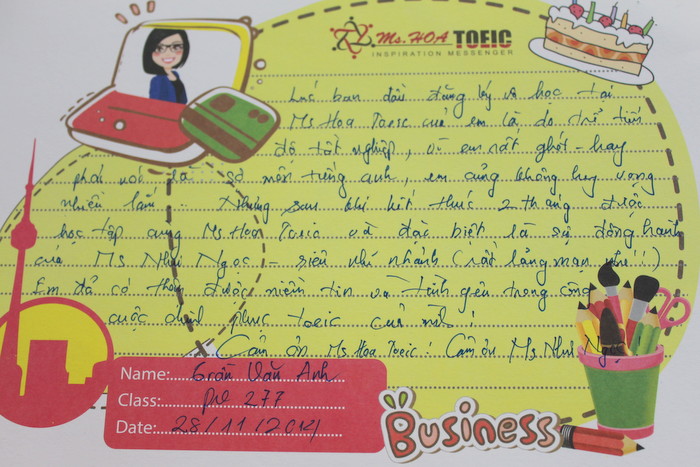 Ms. HOA TOEIC
INSPIRATION MESSENGER
Lúc ban đầu đăng ký và học tại
Ms Hoa Toeic của em là do trể tiến
độ tốt nghiệp, vì em rất ghét - hay
phải nói là sợ môn tiếng anh, em cũng không hy vọng
nhiều lắm. Nhưng sau khi kết thúc 2 tháng được
học tập cùng Ms Hoa Toeic và đặc biệt là sự đồng hành
của Ms Như Ngọc - siêu nhí nhảnh (rất lảng mạn nhé!!!)
Em đã có thêm được niềm tin và tình yêu trong công
cuộc chinh phục toeic của mình!
Cảm ơn Ms Hoa Toeic! Cảm ơn Ms Như Ngọc
Name: Trần Văn Anh
Class: Pre 277
Date: 28/11/2014
BUSINESS